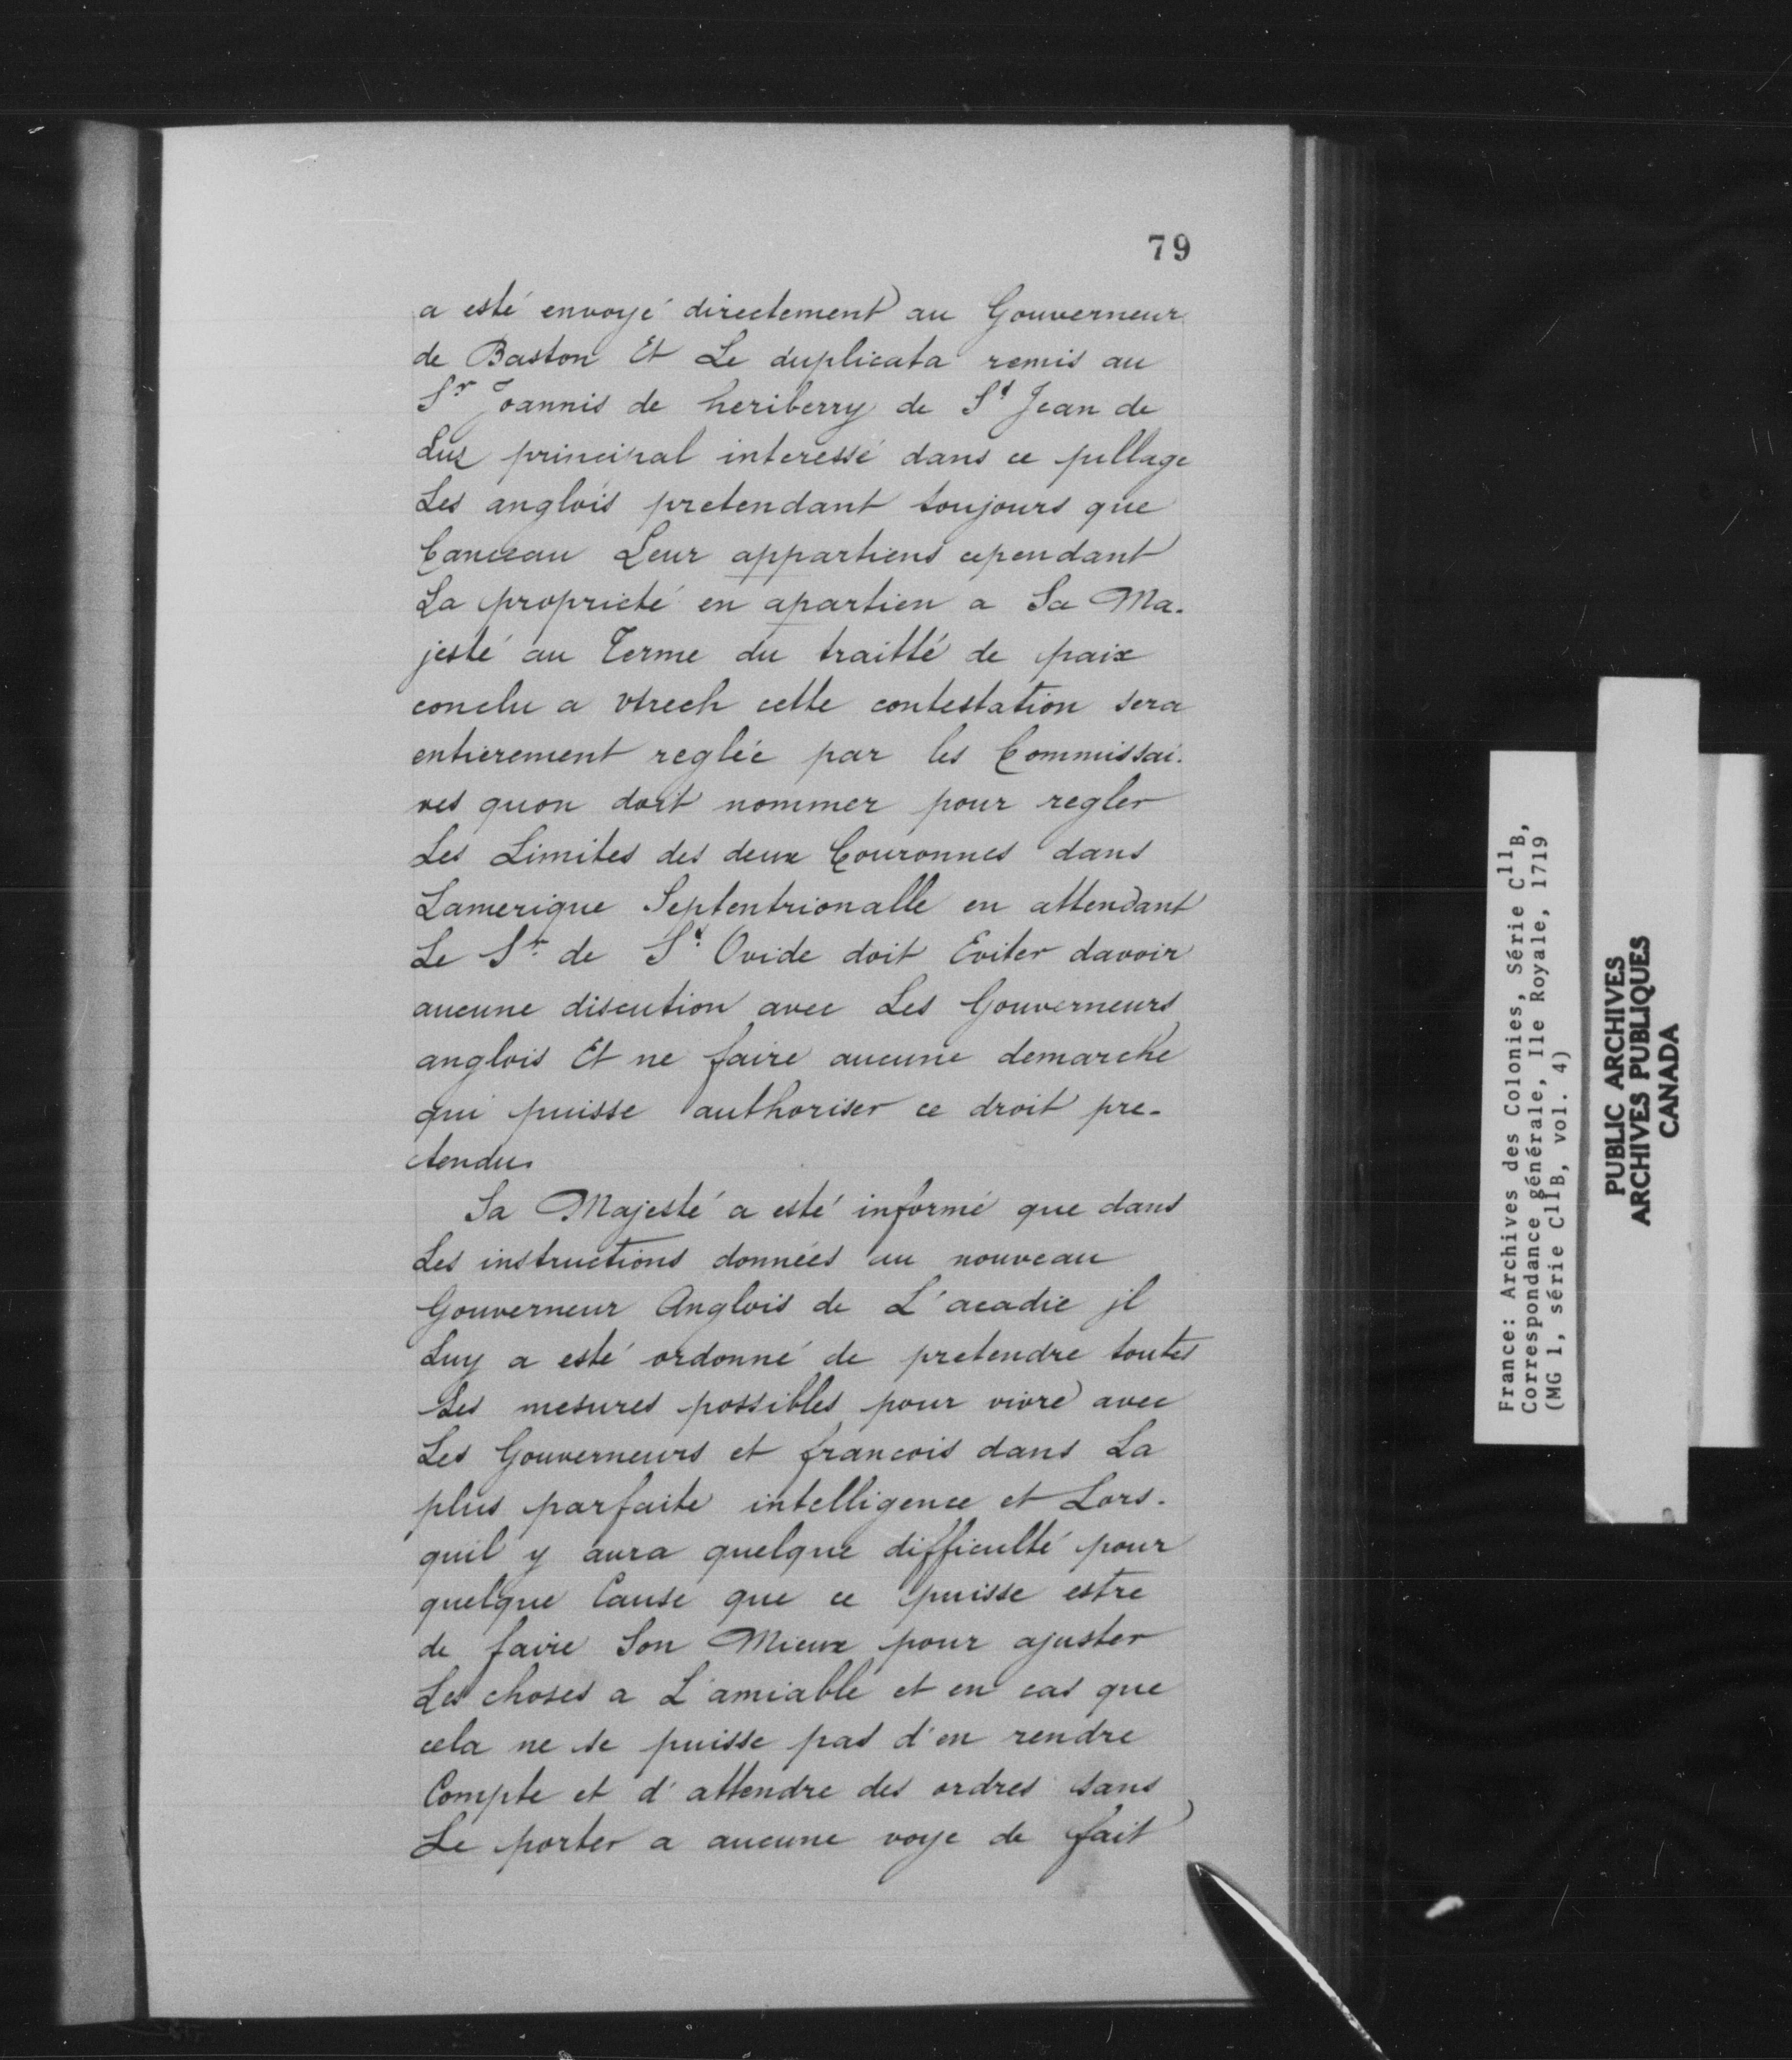 79
a esté envoyé directement au Gouverneur
de Baston Et Le duplicata remis au
Sr Joannis de heriberry de St Jean de
Luz principal interessé dans ce pillage
Les anglois pretendant toujours que
Canceau Leur appartiens cependant
La proprieté en apartien a Sa Ma-
jesté au Terme du traitté de paix
conclu a Vtrech cette contestation sera
entierement reglée par les Commissai-
res quon doit nommer pour regler
Les Limites des deux Couronnes dans
Lamerique Septentrionalle en attendant
Le Sr de St Ovide doit Eviter davoir
aucune discution avec Les Gouverneurs
anglois Et ne faire aucune demarche
qui puisse authoriser ce droit pre-
tendu.
Sa Majesté a esté informé que dans
Les instructions données au nouveau
Gouverneur Anglois de L'acadie jl
Luy a esté ordonné de pretendre toutes
Les mesures possibles pour vivre avec
Les Gouverneurs et francois dans La
plus parfaite intelligence et Lors-
quil y aura quelque difficulté pour
quelque Cause que ce puisse estre
de faire Son Mieux pour ajuster
Les choses a L'amiable et en cas que
cela ne se puisse pas d'en rendre
Compte et d'attendre des ordres sans
Se porter a aucune voye de fait
France: Archives des Colonies, Série C11B,
Correspondance générale, Ile Royale, 1719
(MG 1, série C11B, vol. 4)
PUBLIC ARCHIVES
ARCHIVES PUBLIQUES
CANADA